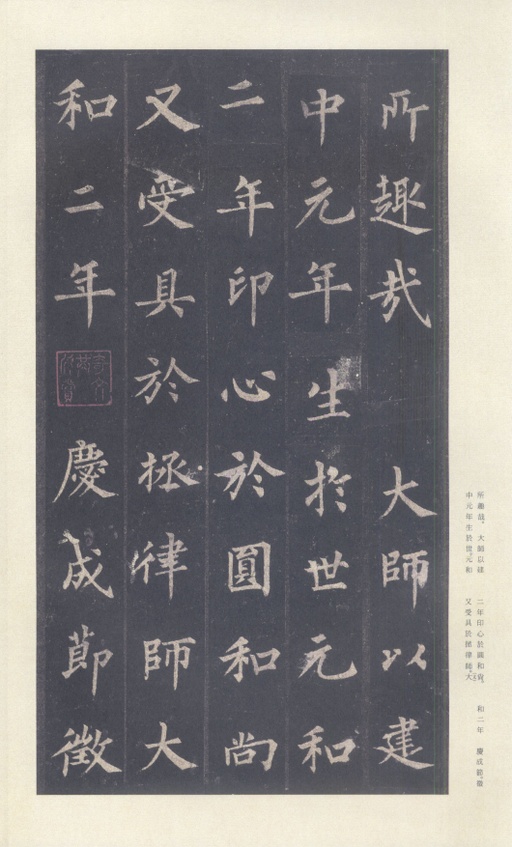 所趣哉 大師以建
中元年生於世元和
二年印心於圓和尚
又受具於拯律師大
和二年 慶成節徵
所趣哉。大師以建
中元年生於世。元和
二年印心於圓和尚。
又受具於拯律師。大
和二年 慶成節。徵